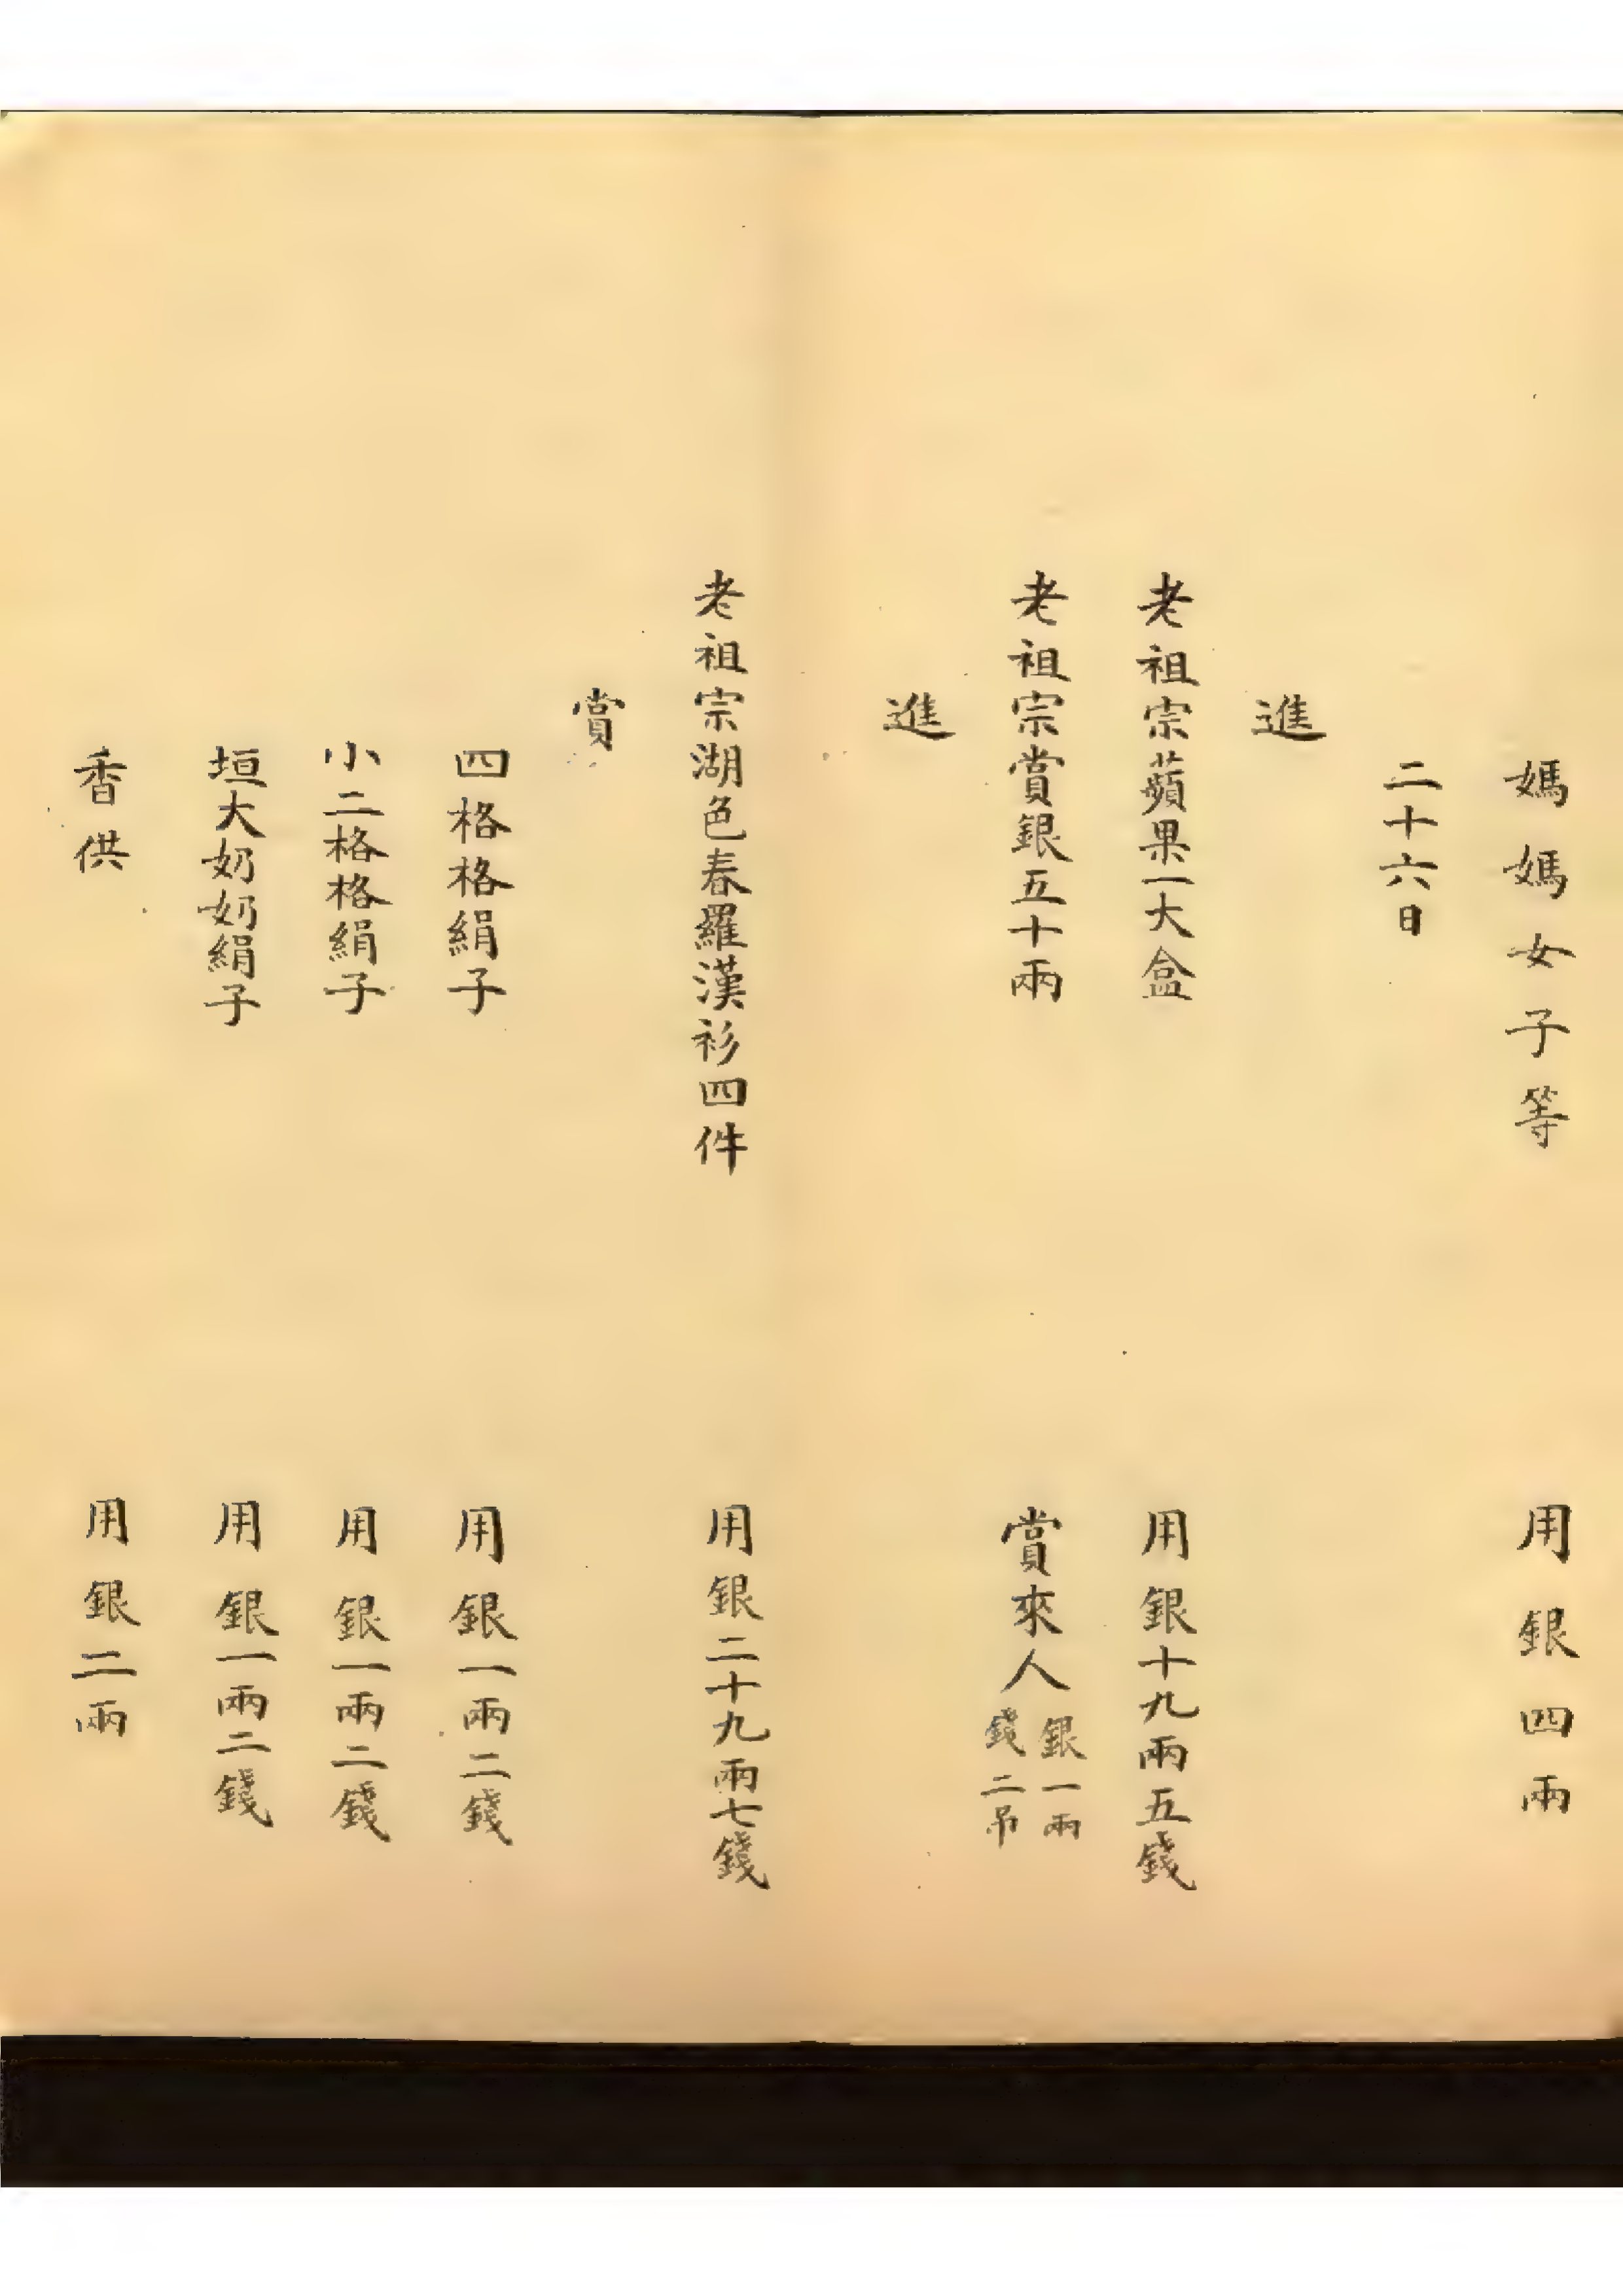 媽媽女子等　用銀四兩
二十六日
進
老祖宗蘋果一大盒　用銀十九兩五錢
老祖宗賞銀五十兩　賞來人銀一兩錢二吊
進
老祖宗湖色春羅漢衫四件　用銀二十九兩七錢
賞
四格格絹子　用銀一兩二錢
小二格格絹子　用銀一兩二錢
垣大奶奶絹子　用銀一兩二錢
香供　用銀二兩